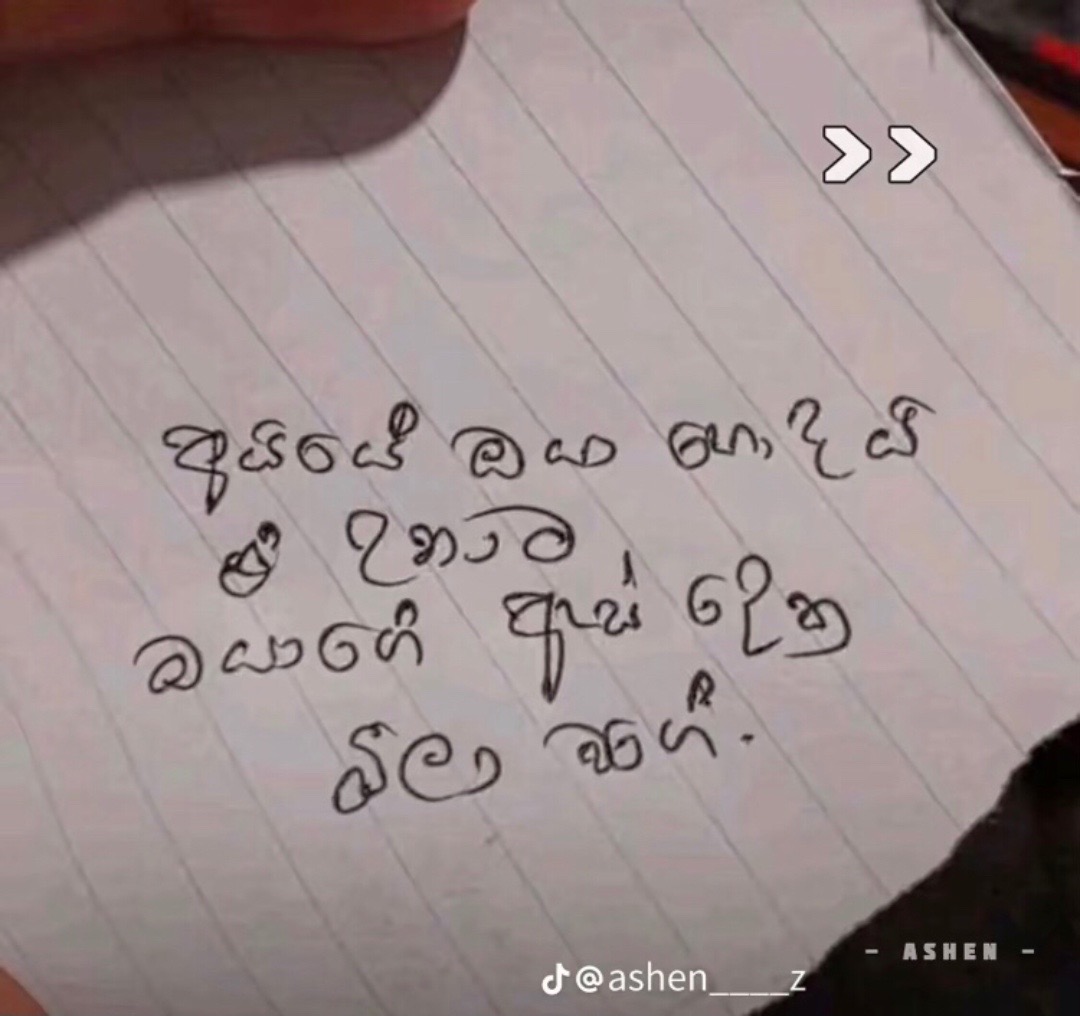 අයියේ ඔයා හොදයි
ඒ උනාට
ඔයාගේ ඇස් දෙක
බීලා වගේ.
- ASHEN -
@ashen____z